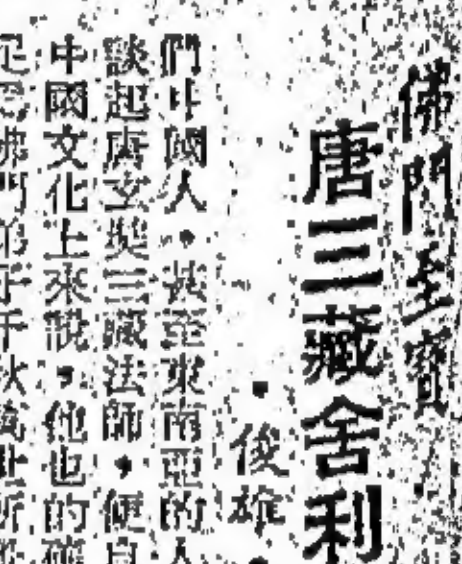 佛門至寶
唐三藏舍利
俊雄
們中國人,甚至東南亞的人
談起唐玄奘三藏法師,便
中國文化上來說,他也的確
佛門弟子千秋萬世所